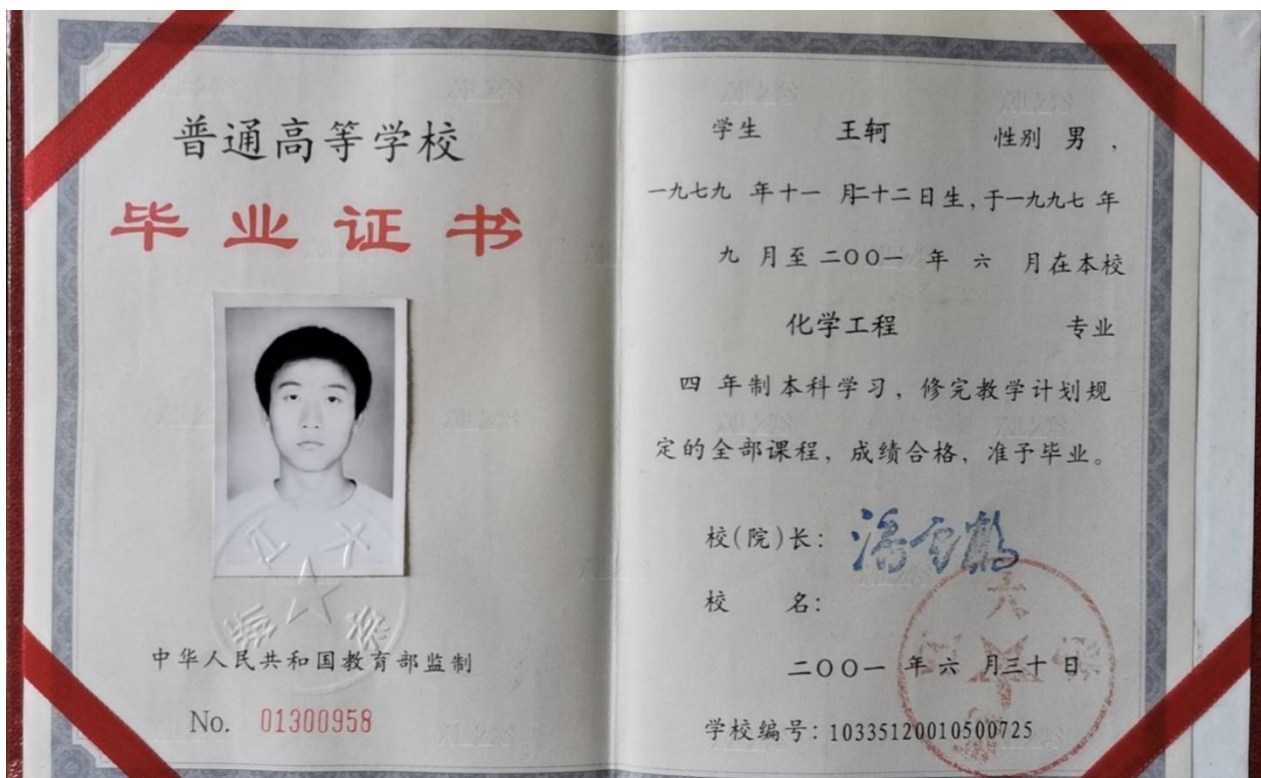 普通高等学校
毕业证书
中华人民共和国教育部监制
No. 01300958
学生 王轲 性别 男,
一九七九 年十一 月二十二日生,于一九九七 年
九 月至 二〇〇一 年 六 月在本校
化学工程 专业
四 年制本科学习，修完教学计划规
定的全部课程，成绩合格，准予毕业。
校(院)长: 潘云鹤
校 名:
二〇〇一 年 六 月三十 日
学校编号: 10335120010500725